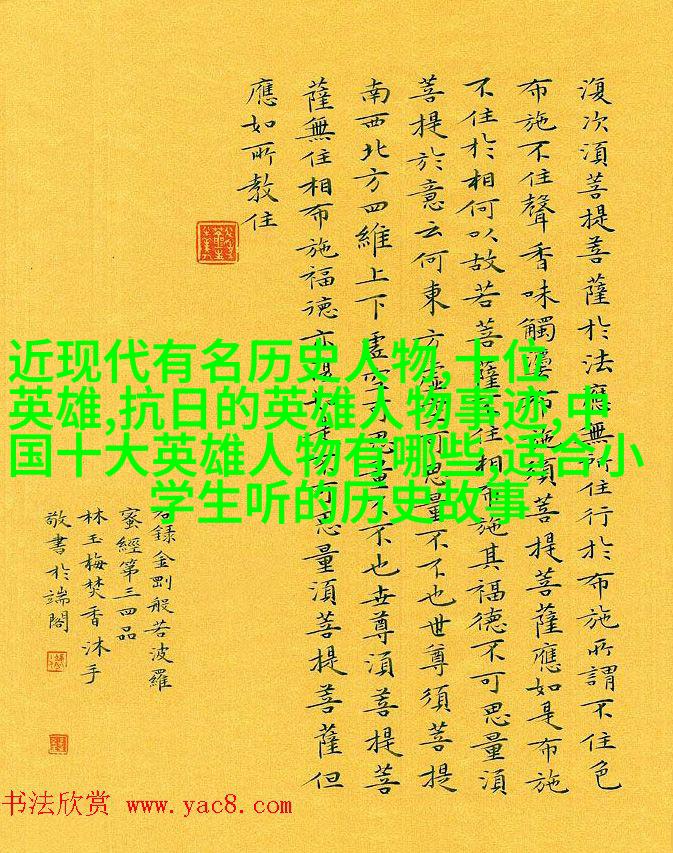 復次須菩提菩薩於法應無所住行於布施所謂不住色
布施不住聲香味觸法布施須菩提菩薩應如是布施
不住於相何以故若菩薩不住相布施其福德不可思量須
菩提於意云何東方虛空可思量不不也世尊須菩提
南西北方四維上下虛空可思量不不也世尊須菩提菩
薩無住相布施福德亦復如是不可思量須菩提菩薩但
應如所教住
右錄金剛般若波羅
蜜經第三四品
林玉梅焚香沐手
敬書於端閣
近现代有名历史人物,十位
英雄,抗日的英雄人物事迹,中
国十大英雄人物有哪些,适合小
学生听的历史故事
书法欣赏 www.yac8.com